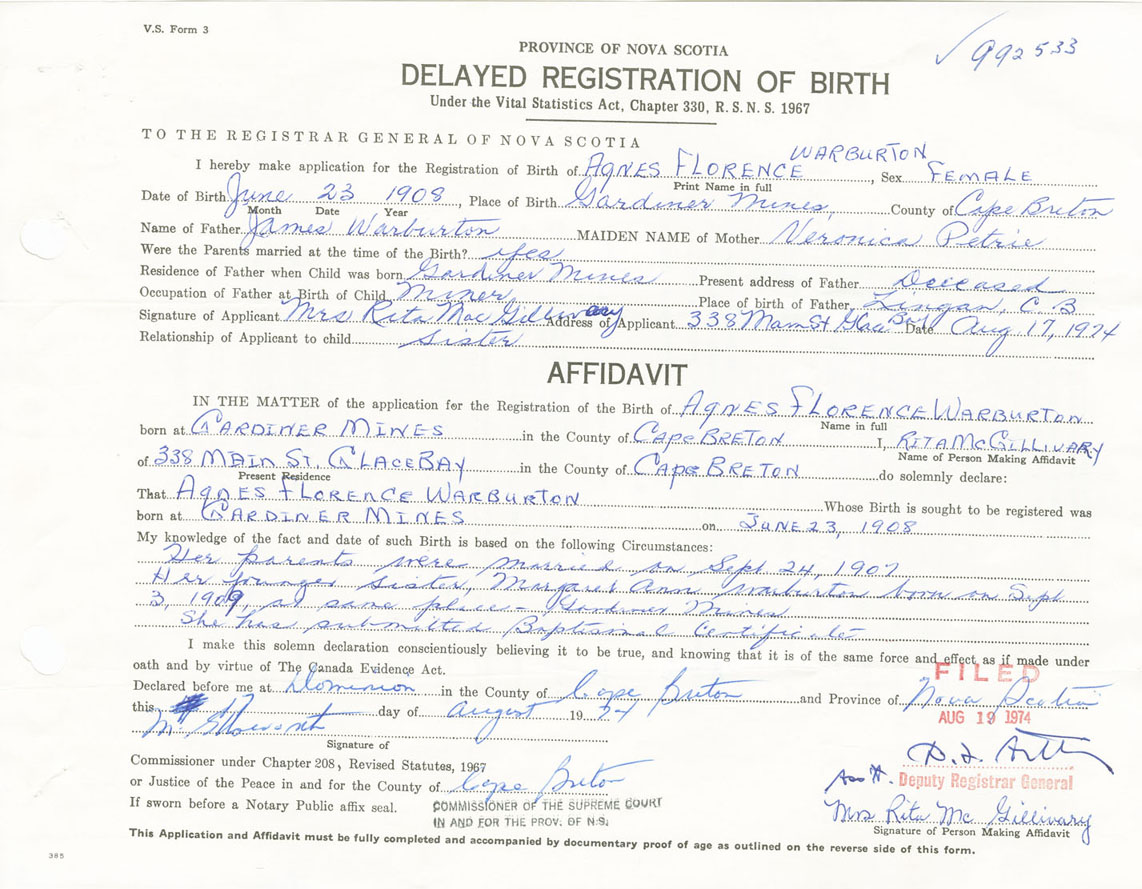 V.S. Form 3
992533
PROVINCE OF NOVA SCOTIA
DELAYED REGISTRATION OF BIRTH
Under the Vital Statistics Act, Chapter 330, R.S.N.S. 1967
TO THE REGISTRAR GENERAL OF NOVA SCOTIA
I hereby make application for the Registration of Birth of AGNES FLORENCE WARBURTON, Sex FEMALE
Print Name in full
Date of Birth June 23 1908, Place of Birth Gardiner Mines, County of Cape Breton
Month Date Year
Name of Father James Warburton MAIDEN NAME of Mother Veronica Petrie
Were the Parents married at the time of the Birth? yes
Residence of Father when Child was born Gardiner Mines Present address of Father Deceased
Occupation of Father at Birth of Child Miner Place of birth of Father Lingan, C.B
Signature of Applicant Mrs Rita Mac Gillivary Address of Applicant 338 Main St Glace Bay Date Aug 17, 1974
Relationship of Applicant to child sister
AFFIDAVIT
IN THE MATTER of the application for the Registration of the Birth of AGNES FLORENCE WARBURTON
Name in full
born at GARDINER MINES in the County of CAPE BRETON I, RITA MCGILLIVARY
Name of Person Making Affidavit
of 338 MAIN ST. GLACE BAY in the County of CAPE BRETON do solemnly declare:
Present Residence
That AGNES FLORENCE WARBURTON Whose Birth is sought to be registered was
born at GARDINER MINES on JUNE 23, 1908
My knowledge of the fact and date of such Birth is based on the following Circumstances:
Her parents were married on Sept 24, 1907
Her younger sister, Margaret Ann Warburton born on Sept
3, 1909, at same place - Gardiner Mines
She has submitted Baptismal Certificate
I make this solemn declaration conscientiously believing it to be true, and knowing that it is of the same force and effect as if made under
oath and by virtue of The Canada Evidence Act.
FILED
Declared before me at Dominion in the County of Cape Breton and Province of Nova Scotia
this 17 day of August 1974
AUG 19 1974
Signature of
Commissioner under Chapter 208, Revised Statutes, 1967
Deputy Registrar General
or Justice of the Peace in and for the County of Cape Breton
If sworn before a Notary Public affix seal.
COMMISSIONER OF THE SUPREME COURT
IN AND FOR THE PROV. OF N.S.
Mrs Rita Mc Gillivary
Signature of Person Making Affidavit
This Application and Affidavit must be fully completed and accompanied by documentary proof of age as outlined on the reverse side of this form.
385